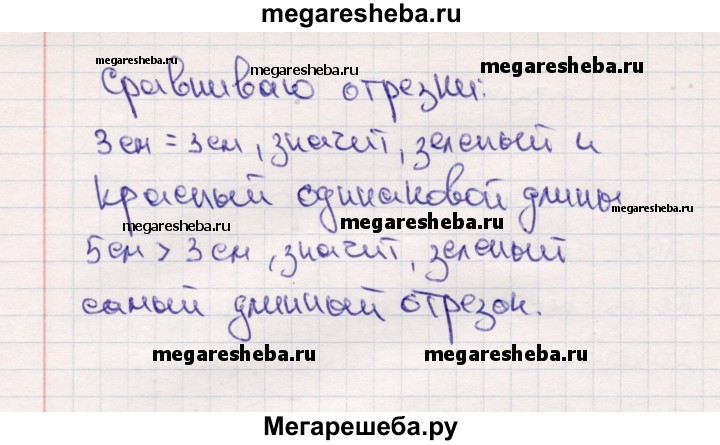 megaresheba.ru
megaresheba.ru megaresheba.ru megaresheba.ru
Сравниваю отрезки:
3 см = 3 см, значит, зеленый и
красный одинаковой длины
megaresheba.ru megaresheba.ru megaresheba.ru
5 см > 3 см, значит, зеленый
самый длинный отрезок.
megaresheba.ru megaresheba.ru
Мегарешеба.ру